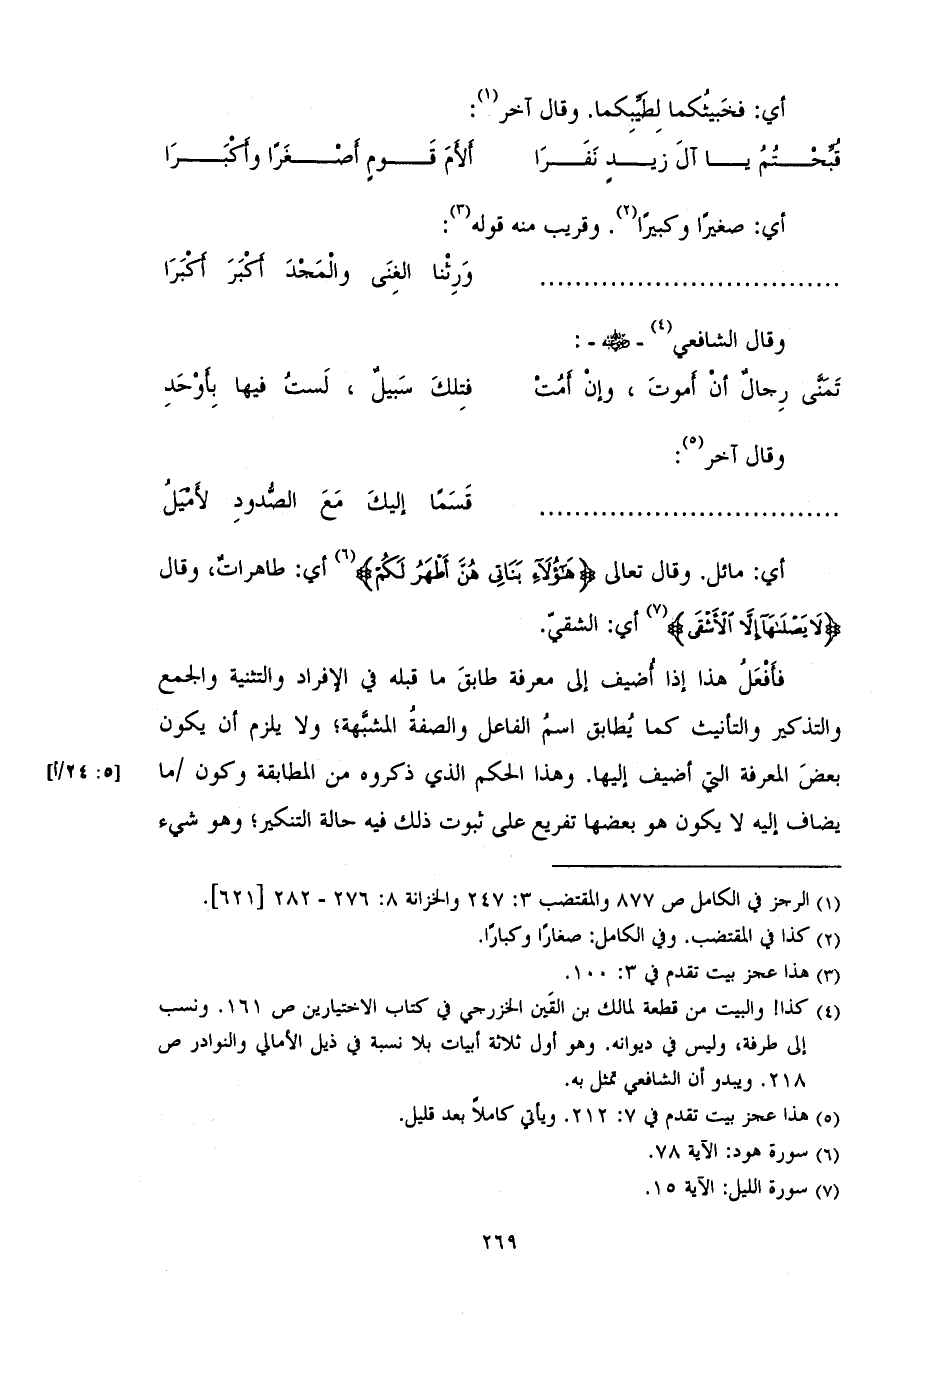 أي: فخَبيثُكما لِطَيِّبِكما. وقال آخر(١):
قُبِّحْـــتُمُ يـــا آلَ زيـــدٍ نَفَـــرَا ألأَمَ قَـــومٍ أَصْـــغَرًا وأَكْبَـــرَا
أي: صغيرًا وكبيرًا(٢). وقريب منه قوله(٣):
.................................. وَرِثْنا الغِنَى والْمَجْدَ أَكْبَرَ أَكْبَرَا
وقال الشافعي(٤) - ﷺ - :
تَمَنَّى رِجالٌ أنْ أموتَ ، وإنْ أَمُتْ فتِلكَ سَبيلٌ ، لَستُ فيها بِأَوْحَدِ
وقال آخر(٥):
.................................. قَسَمًا إليكَ مَعَ الصُّدودِ لأَمْيَلُ
أي: مائل. وقال تعالى ﴿هَٰٓؤُلَآءِ بَنَاتِى هُنَّ أَطْهَرُ لَكُمْ﴾(٦) أي: طاهراتٌ، وقال
﴿لَا يَصْلَىٰهَآ إِلَّا ٱلْأَشْقَى﴾(٧) أي: الشقيّ.
فأَفْعَلُ هذا إذا أُضيف إلى معرفة طابقَ ما قبله في الإفراد والتثنية والجمع
والتذكير والتأنيث كما يُطابق اسمُ الفاعل والصفةُ المشبَّهة؛ ولا يلزم أن يكون
بعضَ المعرفة التي أضيف إليها. وهذا الحكم الذي ذكروه من المطابقة وكون /ما [٥: ٢٤/أ]
يضاف إليه لا يكون هو بعضها تفريع على ثبوت ذلك فيه حالة التنكير؛ وهو شيء
(١) الرجز في الكامل ص ٨٧٧ والمقتضب ٣: ٢٤٧ والخزانة ٨: ٢٧٦ - ٢٨٢ [٦٢١].
(٢) كذا في المقتضب. وفي الكامل: صغارًا وكبارًا.
(٣) هذا عجز بيت تقدم في ٣: ١٠٠.
(٤) كذا! والبيت من قطعة لمالك بن القَين الخزرجي في كتاب الاختيارين ص ١٦١. ونسب
إلى طرفة، وليس في ديوانه. وهو أول ثلاثة أبيات بلا نسبة في ذيل الأمالي والنوادر ص
٢١٨. ويبدو أن الشافعي تمثل به.
(٥) هذا عجز بيت تقدم في ٧: ٢١٢. ويأتي كاملاً بعد قليل.
(٦) سورة هود: الآية ٧٨.
(٧) سورة الليل: الآية ١٥.
٢٦٩